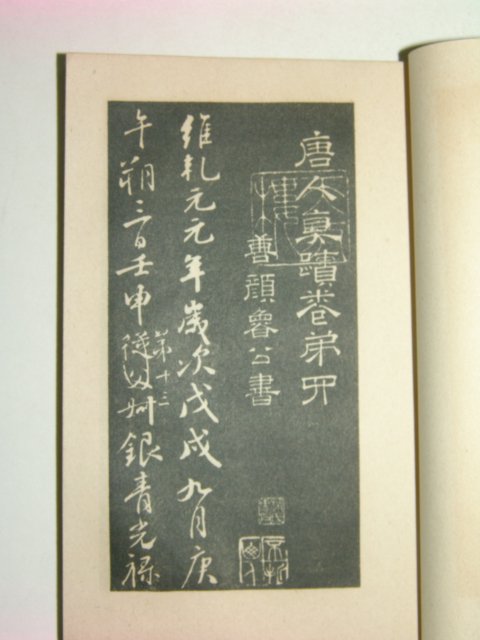 唐人真蹟卷弟四
善顔魯公書
維乹元元年歲次戊戌九月庚
午朔三日壬申第十三從父𠛬銀青光禄